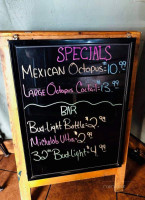 SPECIALS
Mexican Octopus = 10.99
Large Octopus Coctail = 13.99
BAR
Bud-light Bottle = 2.99
Michelob Ultra = 2.99
32oz Bud Light = 4.99